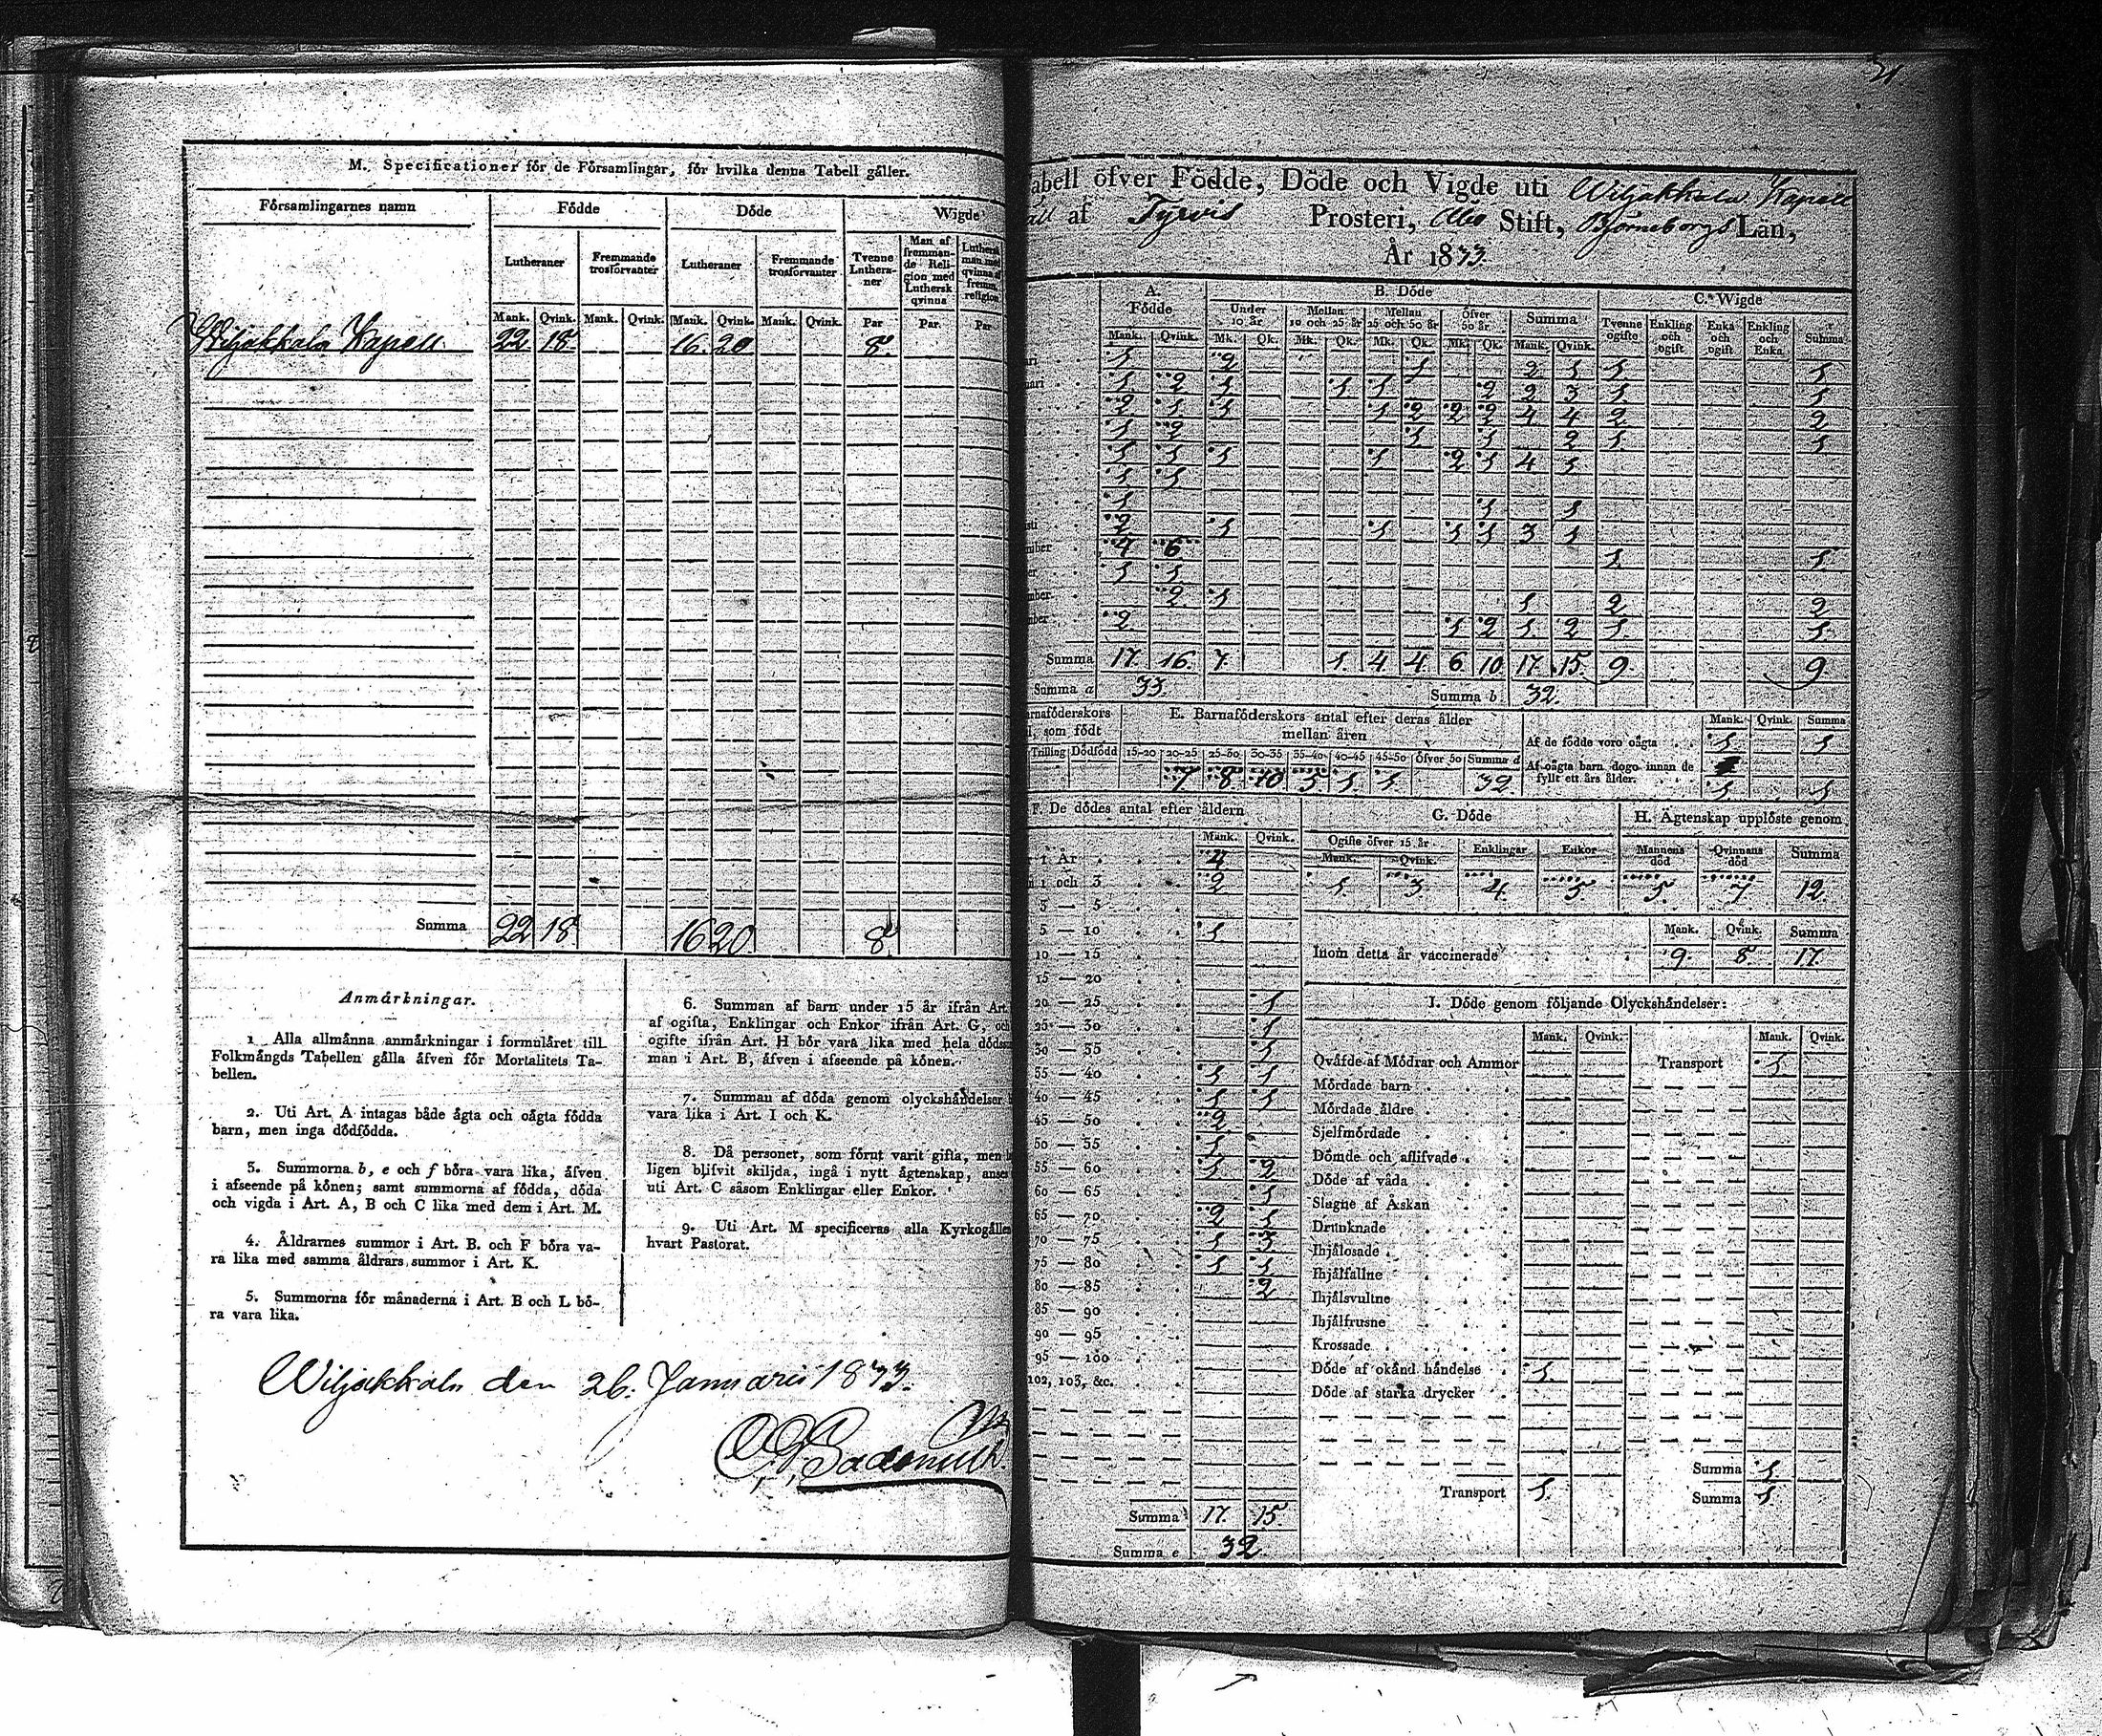 M. Specificationer för de Församlingar, för hvilka denna Tabell gäller.
Församlingarnes namn Födde Döde Wigde
Lutheraner Fremmande trosförvanter Lutheraner Fremmande trosförvanter Tvenne Lutheraner Man af fremmande Religion med Luthersk qvinna Luthersk man med qvinna af fremm. religion
Mank. Qvink. Mank. Qvink. Mank. Qvink. Mank. Qvink. Par Par. Par
Wiljakkala Kapell 22 18. 16. 20 8.
Summa 22 18 16 20. 8.
Anmärkningar.
1. Alla allmänna anmärkningar i formuläret till
Folkmängds Tabellen gälla äfven för Mortalitets Ta-
bellen.
2. Uti Art. A intagas både ägta och oägta födda
barn, men inga dödfödda.
3. Summorna b, e och f böra vara lika, äfven
i afseende på könen; samt summorna af födda, döda
och vigda i Art. A, B och C lika med dem i Art. M.
4. Åldrarnes summor i Art. B. och F böra va-
ra lika med samma åldrars summor i Art. K.
5. Summorna för månaderna i Art. B och L bö-
ra vara lika.
6. Summan af barn under 15 år ifrån Art.
af ogifta, Enklingar och Enkor ifrån Art. G, och
ogifte ifrån Art. H bör vara lika med hela
man i Art. B, äfven i afseende på könen.
7. Summan af döda genom olyckshändelser
vara lika i Art. I och K.
8. Då personer, som förut varit gifta, men
ligen blifvit skiljda, ingå i nytt ägtenskap,
uti Art. C såsom Enklingar eller Enkor.
9. Uti Art. M specificeras alla
hvart Pastorat.
Wiljakkala den 26. Januarii 1833.
21
abell öfver Födde, Döde och Vigde uti Wiljakkala Kapell
äll af Tyrvis Prosteri, Åbo Stift, Björneborgs Län,
År 1833.
A. Födde B. Döde C. Wigde
Under 10 år Mellan 10 och 25 år Mellan 25 och 50 år Öfver 50 år Summa Tvenne ogifte Enkling och ogift Enka och ogift Enkling och Enka Summa
Mank. Qvink. Mk. Qk. Mk. Qk. Mk. Qk. Mk. Qk. Mank. Qvink.
ari 1 2 1 2 1 1 1
uari 1 2 1 1 1 2 2 3 1 1
2 1 1 1 2 2 2 4 4 2 2
1 2 1 1 2 1 1
1 1 1 1 2 1 4 1
1 1
1 1 1
sti 2 1 1 1 1 3 1
mber 4 6 1 1
er 1 1
mber 2 1 1 2 2
mber 2 1 2 1 2 1 1
Summa 17. 16. 7. 1. 4 4. 6. 10. 17. 15. 9. 9.
Summa a 33. Summa b 32.
arnaföderskors
, som födt
Trilling Dödfödd
E. Barnaföderskors antal efter deras ålder
mellan åren
15-20 20-25 25-30 30-35 35-40 40-45 45-50 öfver 50 Summa d
7 8. 10 5 1 1 32
Mank. Qvink. Summa
Af de födde voro oägta 1 1
Af oägta barn dogo innan de
fyllt ett års ålder. 1 1
F. De dödes antal efter åldern
Mank. Qvink.
1 År 4
1 och 3 2
3 — 5
5 — 10 1
10 — 15
15 — 20
20 — 25 1
25 — 30 1
30 — 35 1
35 — 40 1 1
40 — 45 1 1
45 — 50 2
50 — 55 1
55 — 60 1 2
60 — 65 1
65 — 70 2 1
70 — 75 1 3
75 — 80 1 1
80 — 85 2
85 — 90
90 — 95
95 — 100
102, 103, &c.
Summa 17. 15.
Summa e 32
G. Döde
Ogifte öfver 15 år Enklingar Enkor
Mank. Qvink.
1. 3. 4. 5.
H. Ägtenskap upplöste genom
Mannens död Qvinnans död Summa
5. 7 12.
Mank. Qvink. Summa
Inom detta år vaccinerade 9. 8. 17.
I. Döde genom följande Olyckshändelser:
Mank. Qvink. Mank. Qvink.
Qväfde af Mödrar och Ammor Transport 1
Mördade barn
Mördade äldre
Sjelfmördade
Dömde och aflifvade
Döde af våda
Slagne af Åskan
Drunknade
Ihjälosade
Ihjälfallne
Ihjälsvultne
Ihjälfrusne
Krossade
Döde af okänd händelse 1.
Döde af starka drycker
Summa 1
Transport 1. Summa 1